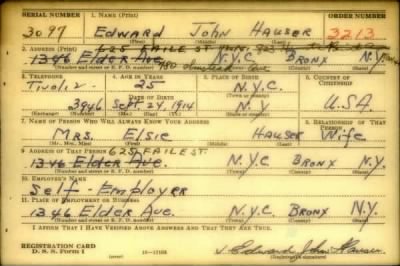 SERIAL NUMBER 1. NAME (Print) ORDER NUMBER
3097 EDWARD JOHN HAUSER 3213
(First) (Middle) (Last)
2. ADDRESS (Print) 625 FAILE ST
1346 ELDER AVE. N.Y.C. BRONX N.Y.
(Number and street or R. F. D. number) (Town) (County) (State)
3. TELEPHONE 4. AGE IN YEARS 5. PLACE OF BIRTH 6. COUNTRY OF CITIZENSHIP
Tivoli 2- 25 N.Y.C.
DATE OF BIRTH
3946 Sept. 24, 1914 N.Y U.S.A
7. NAME OF PERSON WHO WILL ALWAYS KNOW YOUR ADDRESS 8. RELATIONSHIP OF THAT PERSON
Mrs. Elsie Hauser Wife
(Mr., Mrs., Miss) (First) (Middle) (Last)
9. ADDRESS OF THAT PERSON 625 FAILE ST.
1346 Elder Ave. N.Y.C Bronx N.Y.
(Number and street or R. F. D. number) (Town) (County) (State)
10. EMPLOYER'S NAME
Self-Employer
11. PLACE OF EMPLOYMENT OR BUSINESS
1346 Elder Ave. N.Y.C. Bronx N.Y.
(Number and street or R. F. D. number) (Town) (County) (State)
I AFFIRM THAT I HAVE VERIFIED ABOVE ANSWERS AND THAT THEY ARE TRUE.
REGISTRATION CARD
D. S. S. Form 1 Edward John Hauser